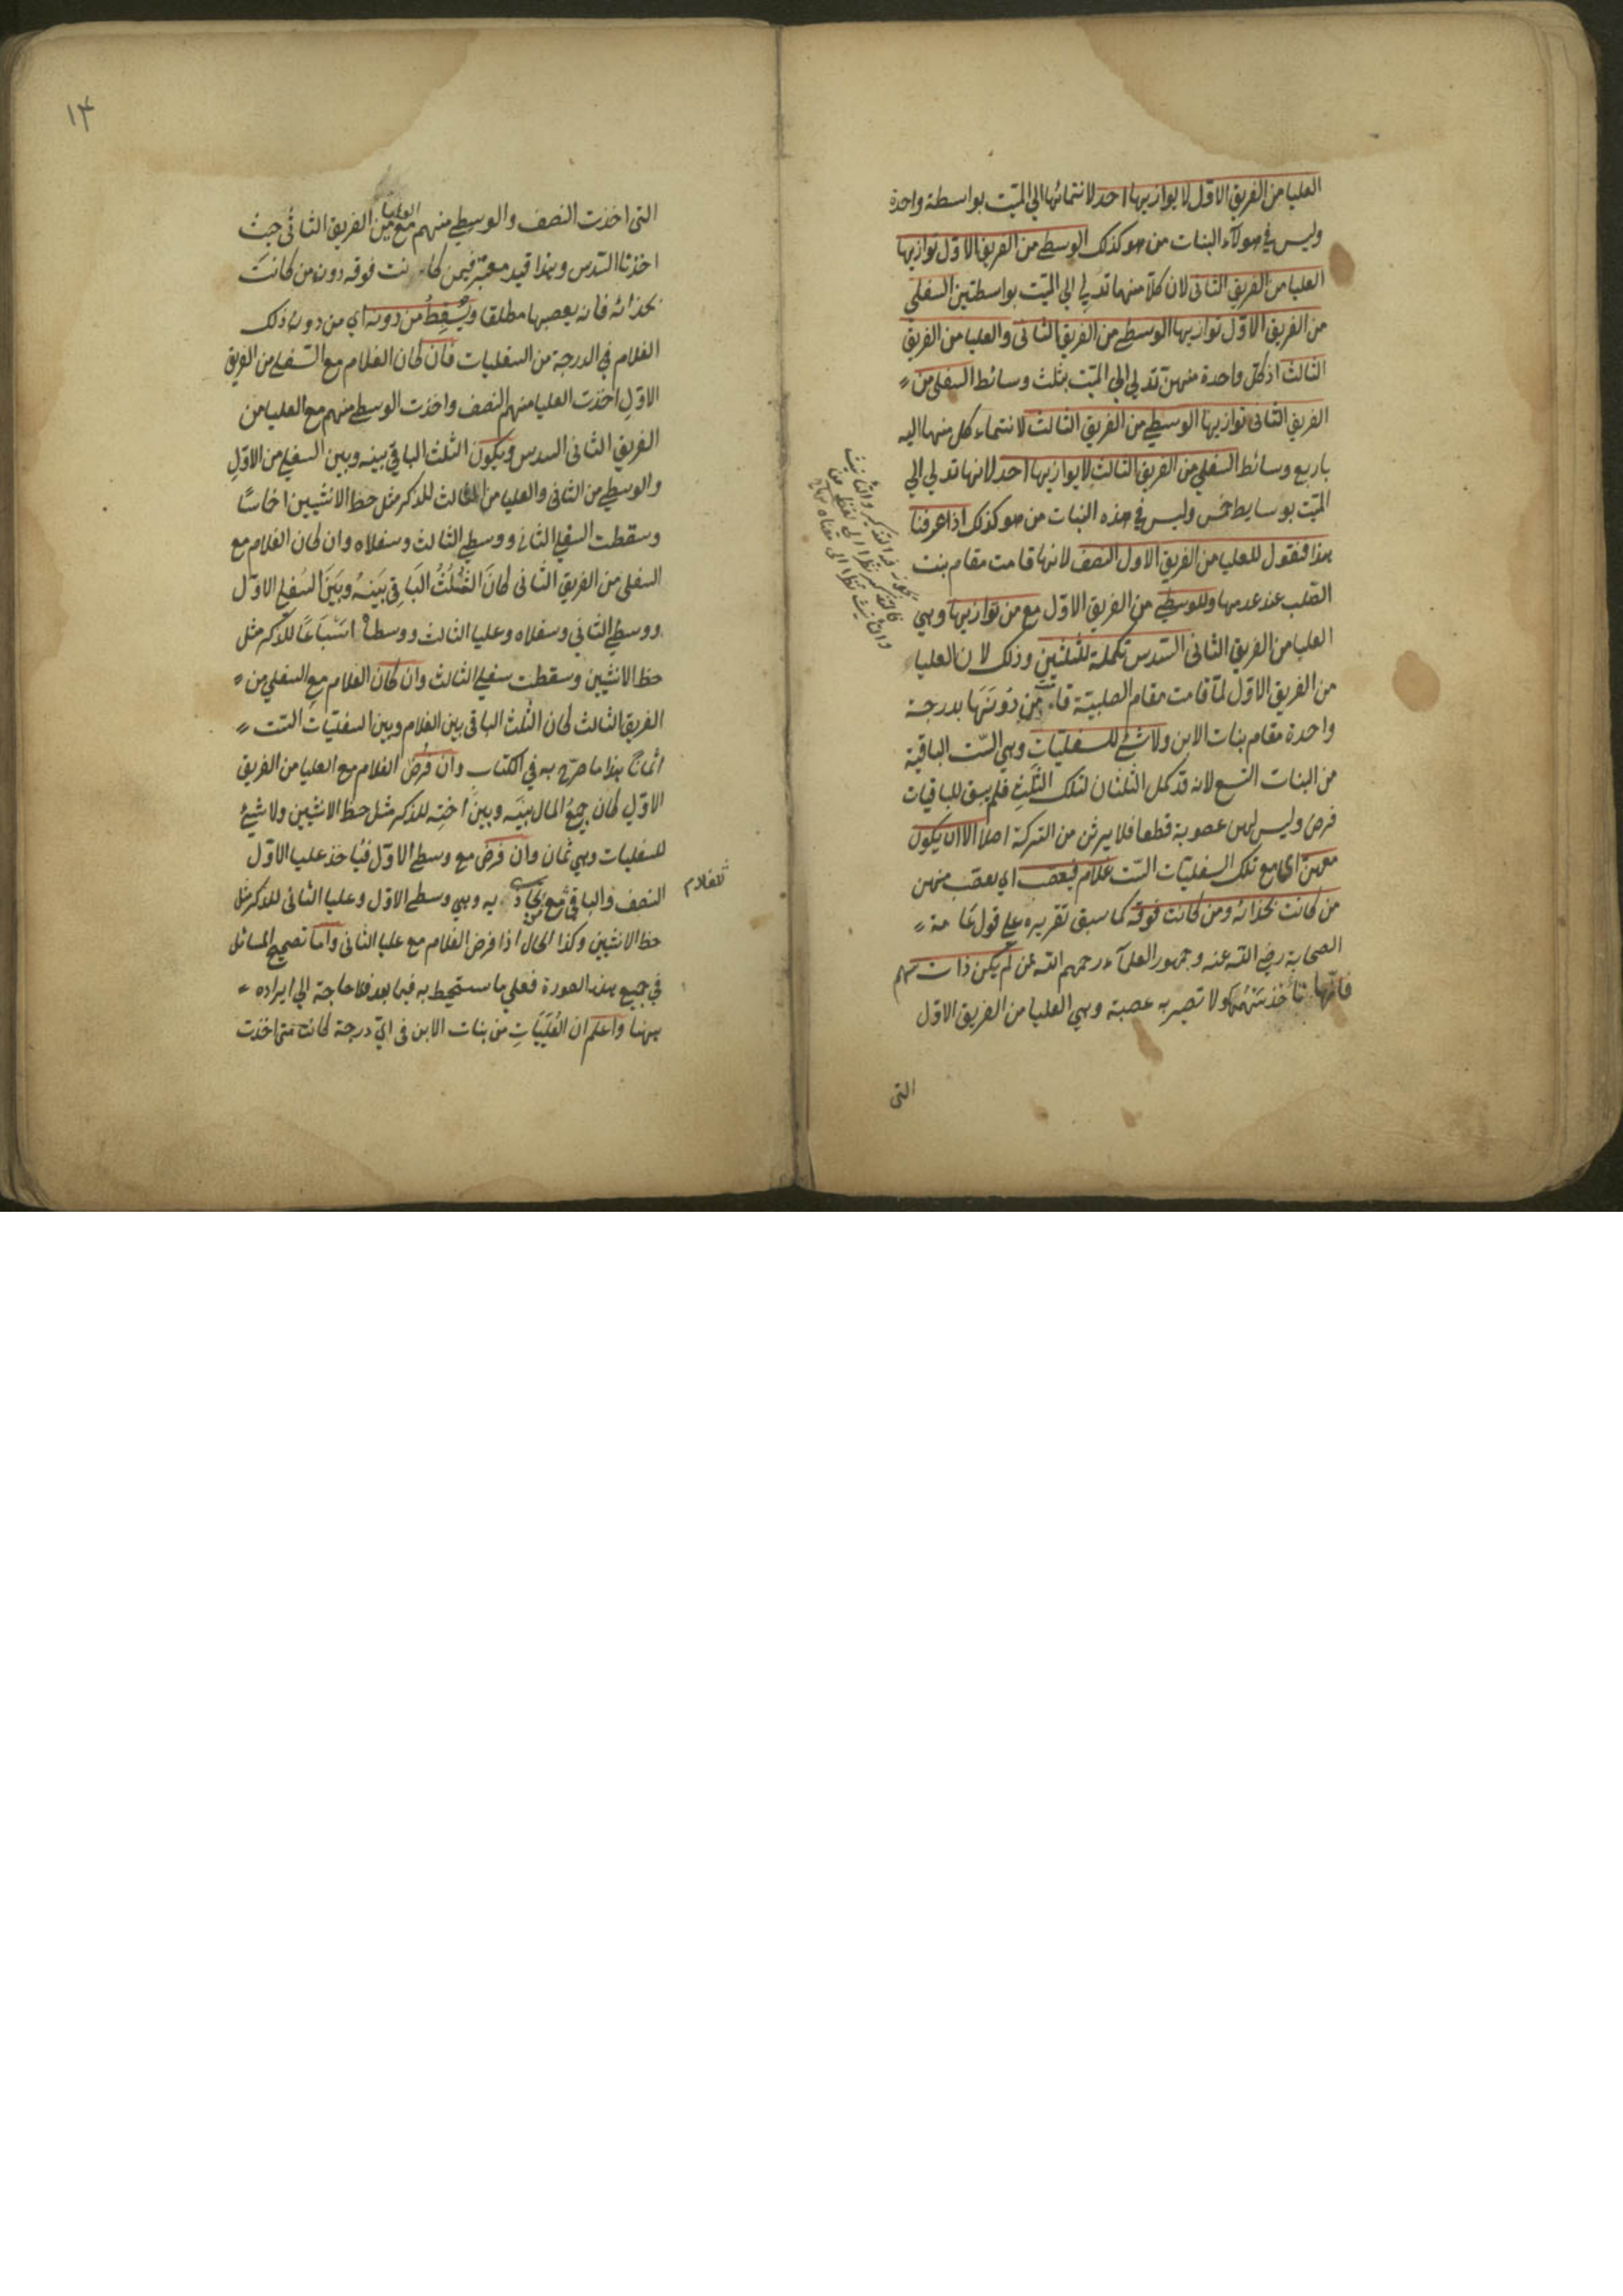 العليا من الفريق الاول لا يوازيها احد لانتمائها الي الميّت بواسطة واحدة
وليس في هولآء البنات من هو كذلك الوسطي من الفريق الاول توازيها
العليا من الفريق الثاني لان كلّا منهما تدلي الي الميّت بواسطتين السفلي
من الفريق الاوّل توازيها الوسطي من الفريق الثاني والعليا من الفريق
الثالث اذ كل واحدة منهن تدلي الي الميّت بثلث وسائط السفلي من
الفريق الثاني توازيها الوسطي من الفريق الثالث لانتماء كل منهما اليه
باربع وسائط السفلي من الفريق الثالث لا يوازيها احد لانها تدلي الي
الميّت بوسايط خمس وليس في هذه البنات من هو كذلك اذا عرفنا
هذا فنقول للعليا من الفريق الاول النصف لانها قامت مقام بنت
الصّلب عند عدمها وللوسطي من الفريق الاوّل مع من توازيها وهي
العليا من الفريق الثاني السّدس تكملة للثلثين وذلك لان العليا
من الفريق الاوّل لمّا قامت مقام الصلبيّة قامت من دونها بدرجة
واحدة مقام بنات الابن ولا شئ للسفليّات وهي السّت الباقية
من البنات التسع لانه قد كمل الثلثان لتلك الثلث فلم يبق للباقيات
فرض وليس لهن عصوبة قطعا فلا يرثن من التركة اصلا الا ان يكون
معهن اى مع تلك السفليّات السّت غلام فيعصّب اي يعصّب منهن
من كانت بحذائه ومن كانت فوقه كما سبق تقريره علي قول عامة
الصحابة رضي الله عنه وجمهور العلمآء رحمهم الله ممن لم يكن ذات سهم
فانّها تأخذ سهمها ولا تصير به عصبة وهي العليا من الفريق الاوّل
التى
يجوز فيه التذكير والتانيث
فالتذكير نظرا الى لفظ من
والتانيث نظرا الى معناه
١٣
التى اخذت النصف والوسطي منهم مع العليا من الفريق الثاني حيث
اخذتا السّدس وهذا قيد معتبر فيمن كانت فوقه دون من كانت
بحذائه فانه يعصبها مطلقا ويُسقِطُ من دونه اي من دون ذلك
الغلام في الدرجة من السفليات فان كان الغلام مع السّفلي من الفريق
الاوّل اخذت العليا منهم النصف واخذت الوسطي منهم مع العليا من
الفريق الثاني السدس ويكون الثلث الباقي بينه وبين السفلي من الاوّل
والوسطي من الثاني والعليا من الثالث للذكر مثل حظ الانثيين اخماسًا
وسقطت السفلي الثاني ووسطي الثالث وسفلاه وان كان الغلام مع
السفلي من الفريق الثاني كان الثُلُثُ البَاقي بَينهُ وبَينَ السُفلي الاوّل
ووسطي الثاني وسفلاه وعليا الثالث ووسطاه اسْبَاعًا للذكر مثل
حظ الانثيين وسقطت سفلي الثالث وان كان الغلام مع السفلي من
الفريق الثالث كان الثلث الباقي بين الغلام وبين السفليّات السّت
اثمانا هذا ما صرّح به في الكتاب وان فُرض الغلام مع العليا من الفريق
الاوّل كان جميعُ المال بينه وبين اخته للذكر مثل حظ الانثيين ولا شيئ
للسفليات وهي ثمان وان فرض مع وسطي الاوّل فيأخذ عليا الاوّل
النصف والباقي مع من يحاذيه وهي وسطي الاول وعليا الثاني للذكر مثل
للغلام
حظ الانثيين وكذا الحال اذا فرض الغلام مع عليا الثاني وامّا تصحيح المسائل
في جميع هذه الصورة فعلي ما ستحيط به فيما بعد فلا حاجة الي ايراده
ههنا واعلم ان العُلْيَيَاتِ من بنات الابن في ايّ درجة كانت متى اخذت